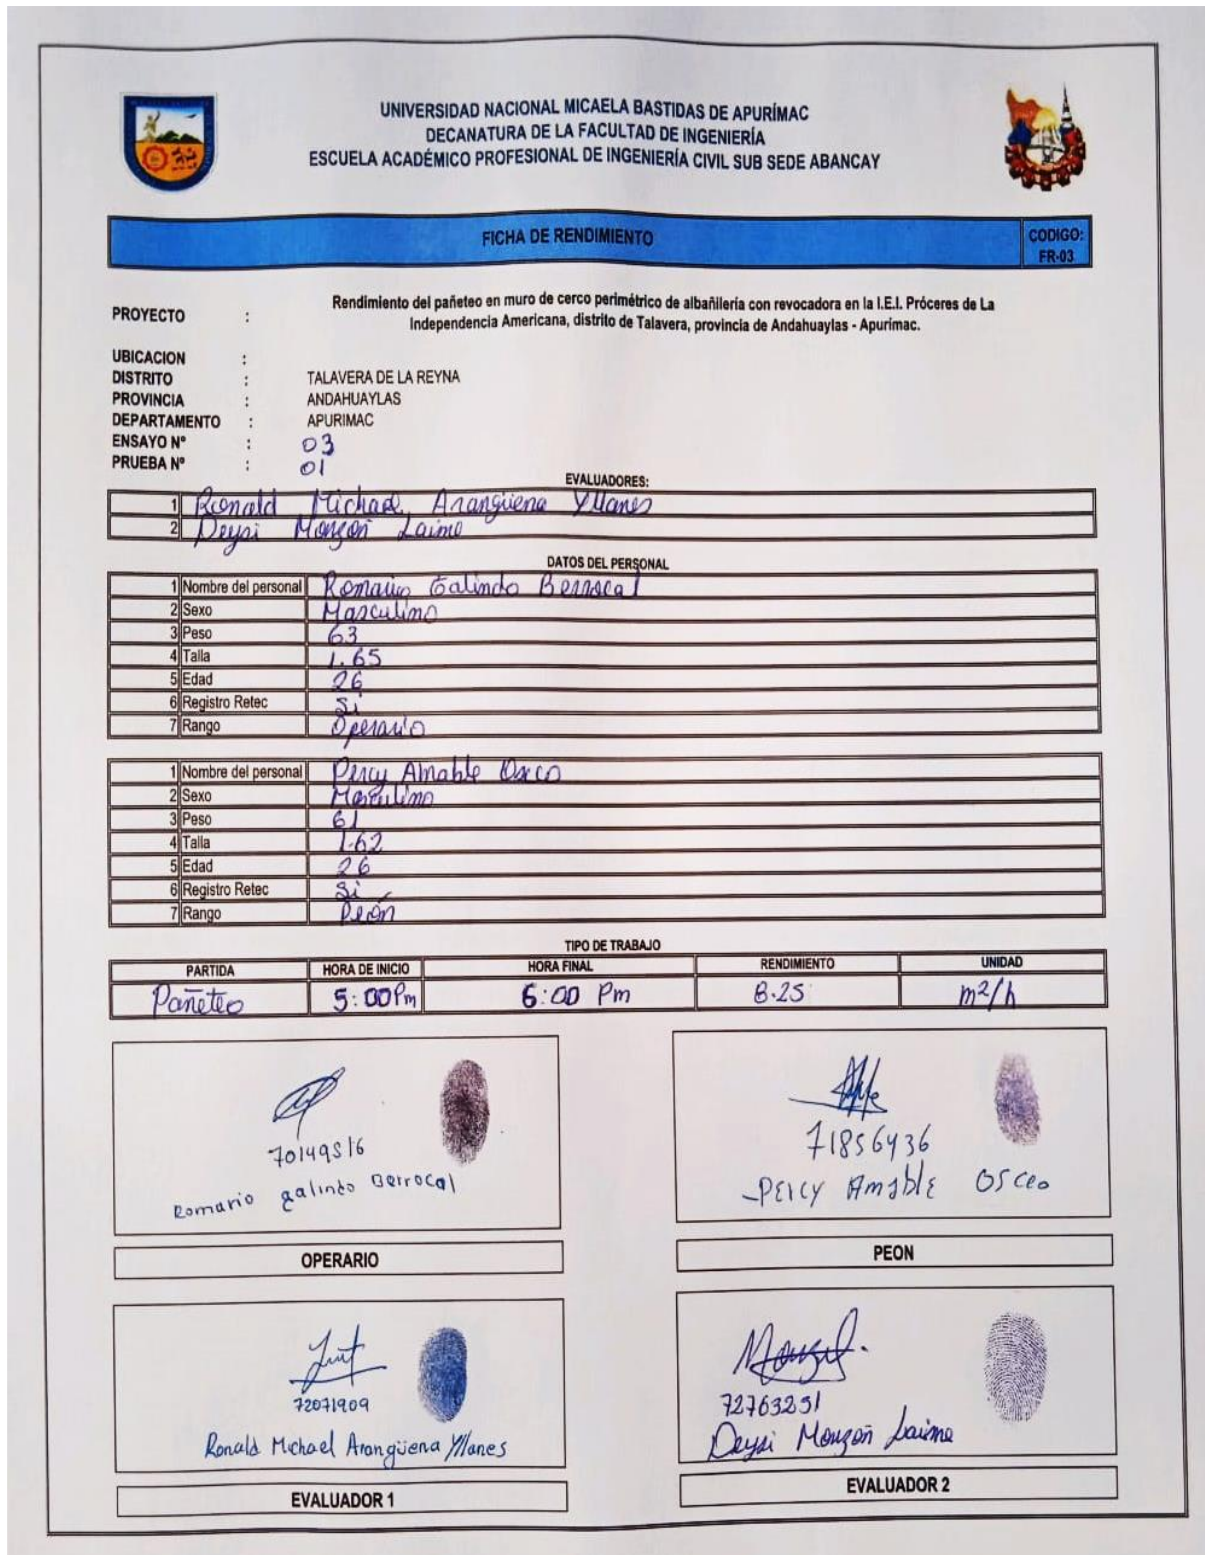 UNIVERSIDAD NACIONAL MICAELA BASTIDAS DE APURÍMAC
DECANATURA DE LA FACULTAD DE INGENIERÍA
ESCUELA ACADÉMICO PROFESIONAL DE INGENIERÍA CIVIL SUB SEDE ABANCAY
FICHA DE RENDIMIENTO
CODIGO:
FR-03
PROYECTO : Rendimiento del pañeteo en muro de cerco perimétrico de albañilería con revocadora en la I.E.I. Próceres de La
Independencia Americana, distrito de Talavera, provincia de Andahuaylas - Apurímac.
UBICACION :
DISTRITO : TALAVERA DE LA REYNA
PROVINCIA : ANDAHUAYLAS
DEPARTAMENTO : APURIMAC
ENSAYO Nº : 03
PRUEBA Nº : 01
EVALUADORES:
1 Ronald Michael Arangüena Yllanes
2 Deysi Monzón Laime
DATOS DEL PERSONAL
1 Nombre del personal Romario Galindo Berrocal
2 Sexo Masculino
3 Peso 63
4 Talla 1.65
5 Edad 26
6 Registro Retec Si
7 Rango Operario
1 Nombre del personal Percy Amable Oscco
2 Sexo Masculino
3 Peso 61
4 Talla 1.62
5 Edad 26
6 Registro Retec Si
7 Rango Peón
TIPO DE TRABAJO
PARTIDA HORA DE INICIO HORA FINAL RENDIMIENTO UNIDAD
Pañeteo 5:00 Pm 6:00 Pm 8.25 m²/h
70149516
Romario galindo Berrocal
OPERARIO
71856436
PERCY AMABLE OSCCO
PEON
72071909
Ronald Michael Arangüena Yllanes
EVALUADOR 1
72763251
Deysi Monzón Laime
EVALUADOR 2